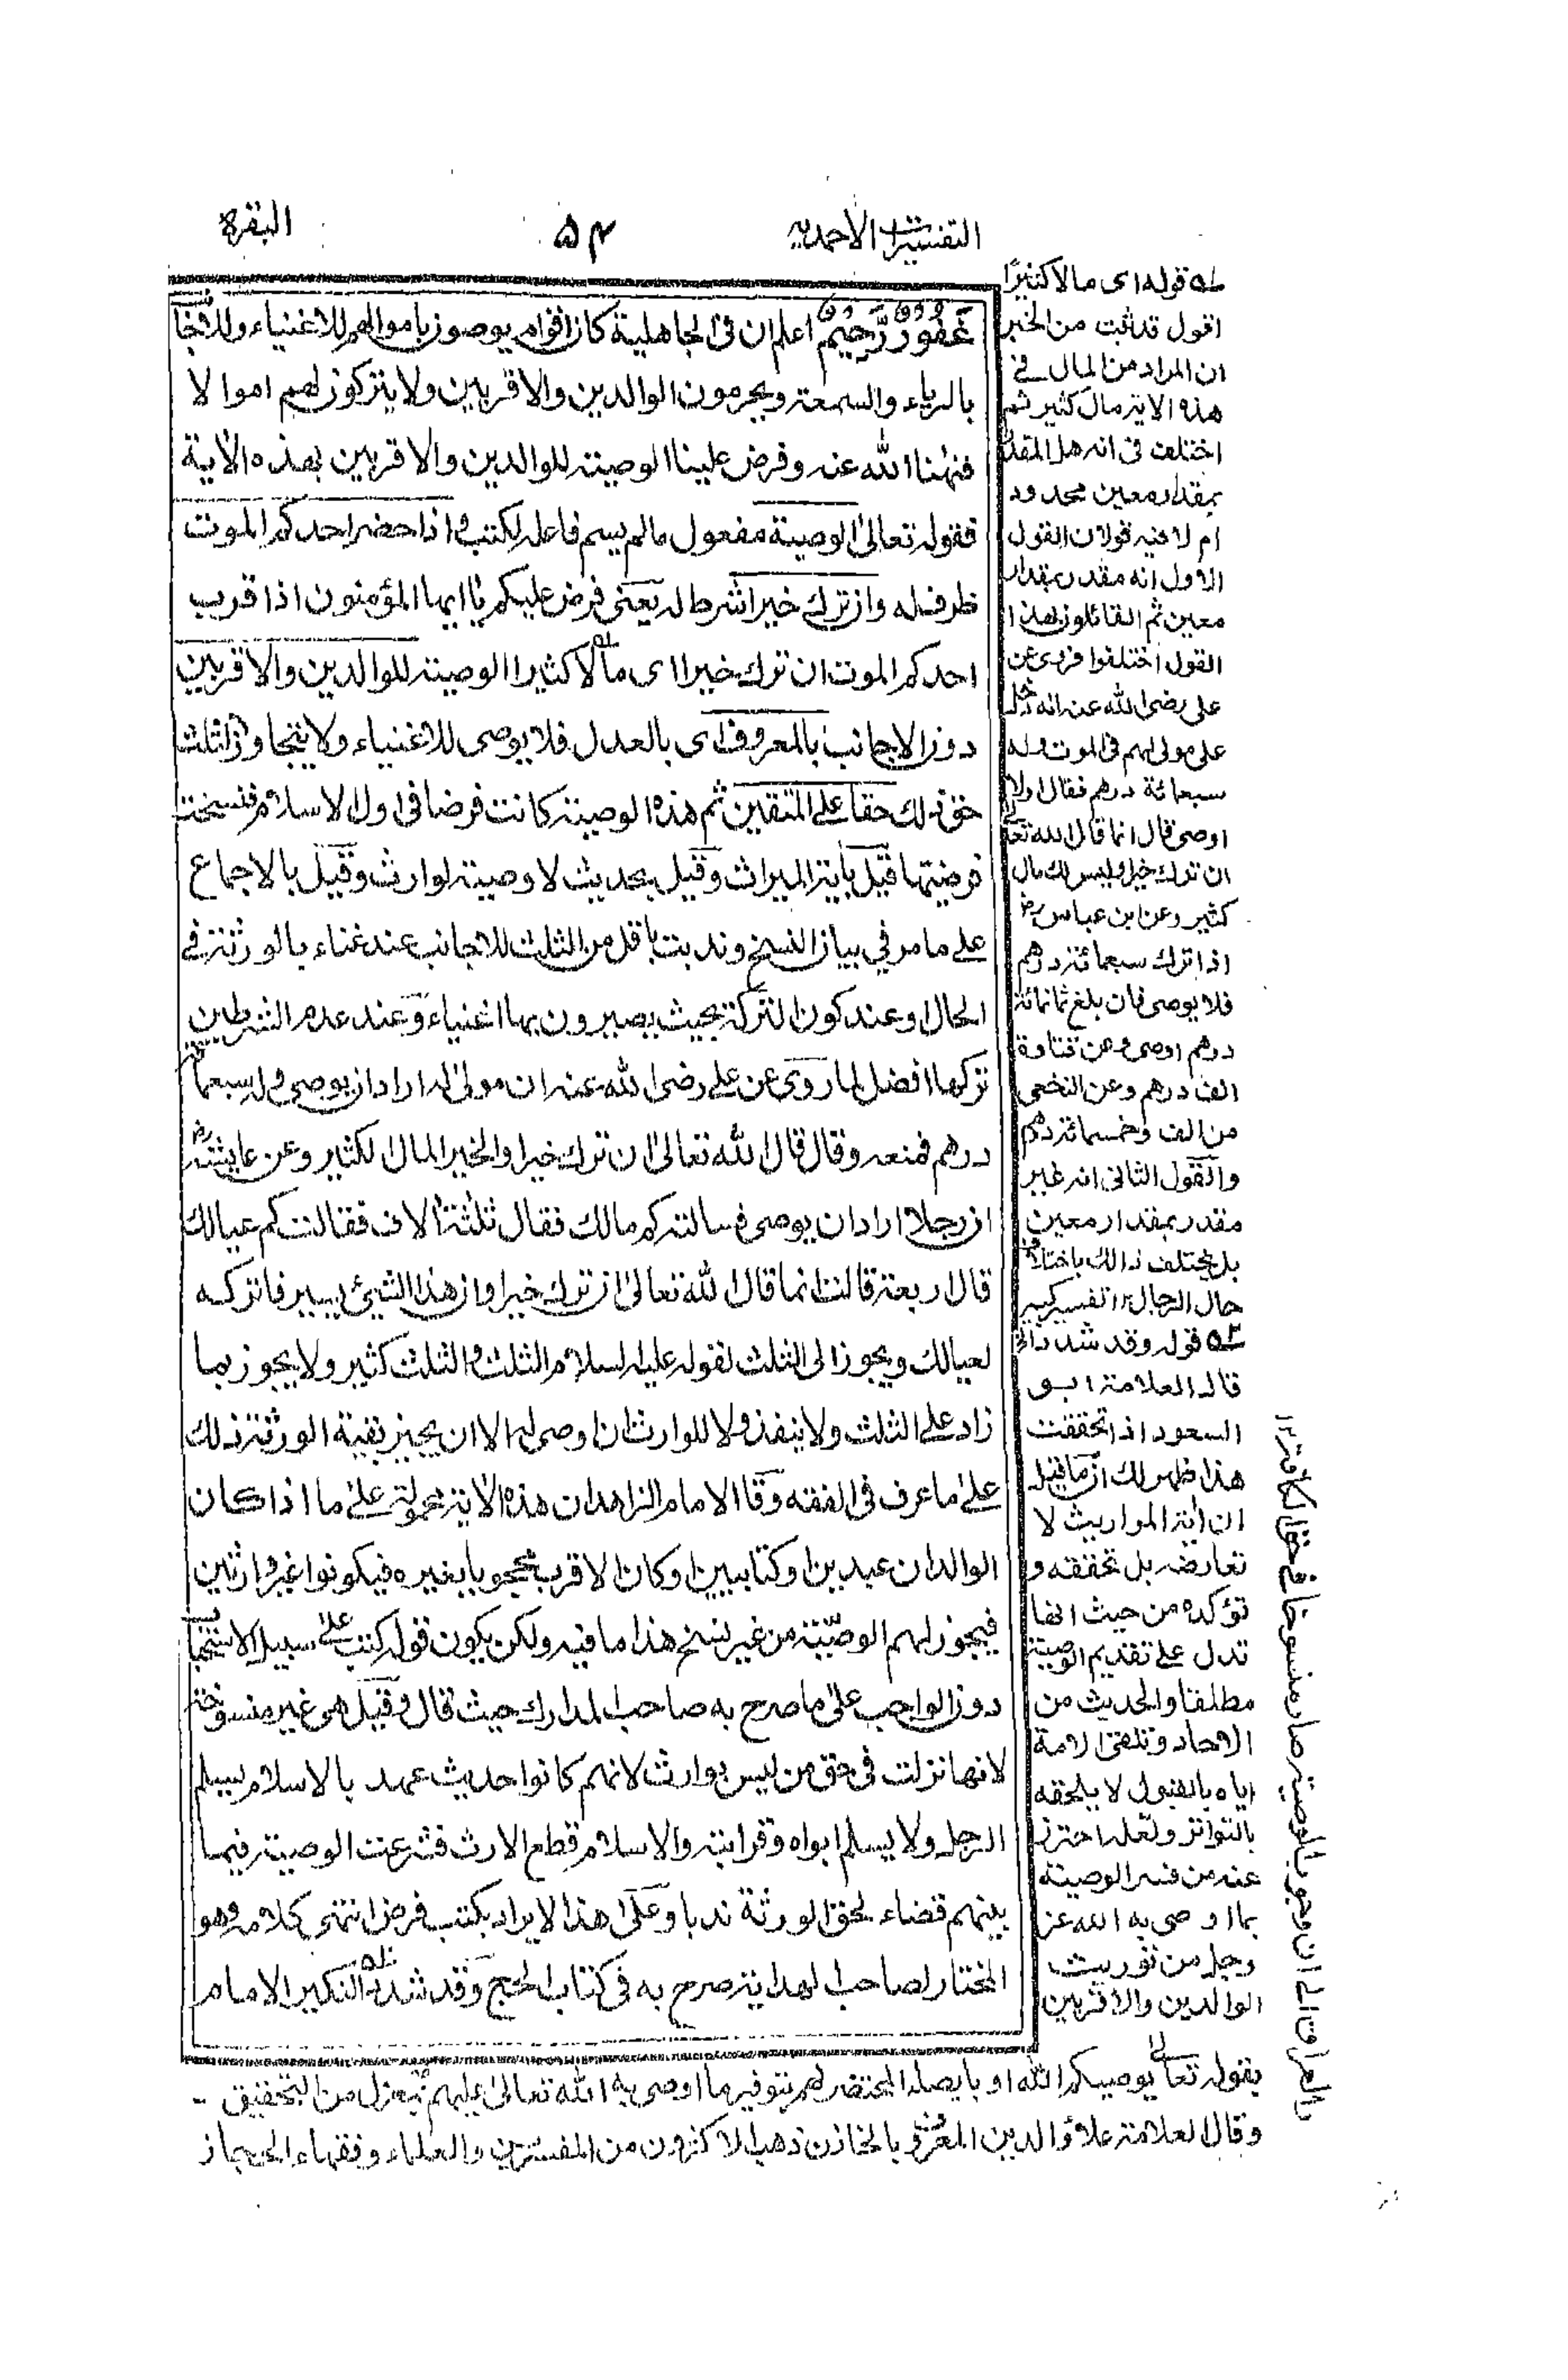 التفسيرات الاحمدية
۵۴
البقرة
غَفُوْرٌ رَّحِيْمٌ اعلم ان فى الجاهلية كان اقوام يوصون باموالهم للاغنياء وللاجانب
بالرياء والسمعة ويحرمون الوالدين والاقربين ولا يتركون لهم اموالا
فنهٰنا الله عنه وفرض علينا الوصية للوالدين والاقربين بهذه الاٰية
فقوله تعالىٰ الوصية مفعول مالم يسم فاعله لكتب واذا حضر احدكم الموت
ظرف له وان ترك خيرا شرط له يعنى فرض عليكم يا ايها المؤمنون اذا قرب
احدكم الموت ان ترك خيرا اى مالا كثيرا الوصية للوالدين والاقربين
دون الاجانب بالمعروف اى بالعدل فلا يوصى للاغنياء ولا يتجاوز الثلث
حق ذلك حقا على المتقين ثم هذه الوصية كانت فرضا فى اول الاسلام فنسخت
فرضيتها قيل بأية الميراث وقيل بحديث لا وصية لوارث وقيل بالاجماع
على ما مر في بيان النسخ وندبت باقل من الثلث للاجانب عند غناء بالورثة في
الحال او عند كون التركة بحيث يصيرون بها اغنياء وعند عدم الشرطين
تركها افضل لما روى عن على رضى الله عنه ان مولىٰ له اراد ان يوصى وله سبعمائة
درهم فمنعه وقال قال الله تعالىٰ ان ترك خيرا والخير المال الكثير وعن عايشة رض
ان رجلا اراد ان يوصى فسالته كم مالك فقال ثلثة اٰلاف فقالت كم عيالك
قال اربعة قالت انما قال الله تعالىٰ ان ترك خيرا وان هذا الشيئ يسير فاتركه
لعيالك ويجوز الى الثلث لقوله عليه السلام الثلث والثلث كثير ولا يجوز بما
زاد على الثلث ولا ينفذ ولا للوارث ان اوصى لها الا ان يجيز بقية الورثة ذلك
علىٰ ما عرف فى الفقه وقا الامام الزاهد ان هذه الاٰية محمولة علىٰ ما اذا كان
الوالدان عبدين او كتابيين او كان الاقرب محجوبا بغيره فيكونوا غير وارثين
فيجوز لهم الوصيّة من غير نسخ هذا ما فيه ولكن يكون قوله كتب علىٰ سبيل الاستحباب
دون الواجب علىٰ ما صرح به صاحب المدارك حيث قال وقيل هو غير منسوخة
لانها نزلت فى حق من ليس بوارث لانهم كانوا حديث عهد بالاسلام يسلم
الرجل ولا يسلم ابواه وقرابته والاسلام قطع الارث فشرعت الوصية فيما
بينهم قضاء لحق الورثة ندبا وعلىٰ هذا لا يراد بكتب فرض انتهى كلامه وهو
المختار لصاحب الهداية صرح به فى كتاب الحج وقد شدد النكير الامام
له قوله اى مالا كثيرًا
اقول قد ثبت من الخبر
ان المراد من المال في
هذه الاية مال كثير ثم
اختلف فى انه هل المقدار
بمقدار معين محدود
ام لا فيه قولان القول
الاول انه مقدر بمقدار
معين ثم القائلون بهذا
القول اختلفوا فروى عن
على رضى الله عنه انه دخل
على مولى لهم فى الموت وله
سبعمائة درهم فقال اولا
اوصى قال انما قال الله تعالى
ان ترك خيرا وليس لك مال
كثير وعن ابن عباس رض
اذا ترك سبعمائة درهم
فلا يوصى فان بلغ ثمانمائة
درهم اوصى وعن قتادة
الف درهم وعن النخعى
من الف وخمسمائة درهم
والقول الثانى انه غير
مقدر بمقدار معين
بل يختلف ذالك باختلاف
حال الرجال ۱۲ تفسير كبير
۲ه قوله وقد شدد الخ
قال العلامة ابو
السعود اذا تحققت
هذا ظهر لك ان ما قيل
ان اٰية المواريث لا
تعارضه بل تحققه و
تؤكده من حيث انها
تدل على تقديم الوصية
مطلقا والحديث من
الاحاد وتلقى الامة
اياه بالقبول لا يلحقه
بالتواتر ولعله احترز
عنه من فسر الوصية
بما اوصى به الله عز
وجل من توريث
الوالدين والاقربين
بقوله تعالىٰ يوصيكم الله او بايصاء المحتضر لهم بتوفير ما اوصى به الله تعالىٰ عليهم بمعزل من التحقيق -
وقال العلامة علاؤ الدين المعروف بالخازن ذهب الاكثرون من المفسرين والعلماء وفقهاء الحجاز
والعراق الى ان وجوب الوصية صار منسوخا فى حق الكافة ۱۲